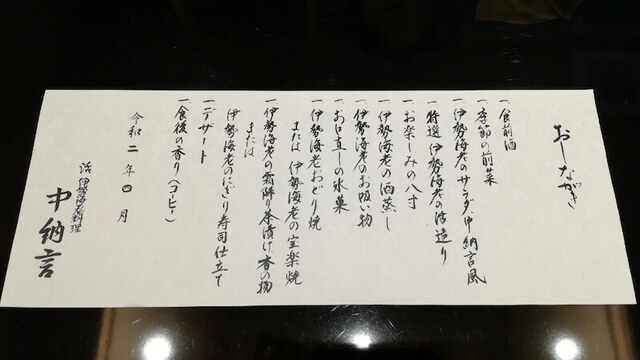 おしながき
一 食前酒
一 季節の前菜
一 伊勢海老のサラダ 中納言風
一 特選 伊勢海老の活造り
一 お楽しみの八寸
一 伊勢海老の酒蒸し
一 伊勢海老のお吸い物
一 お口直しの氷菓
一 伊勢海老おどり焼
または 伊勢海老の宝楽焼
一 伊勢海老の霜降り茶漬け 香の物
または
伊勢海老のにぎり寿司仕立て
一 デザート
一 食後の香り(コーヒー)
令和二年四月
活伊勢海老料理
中納言